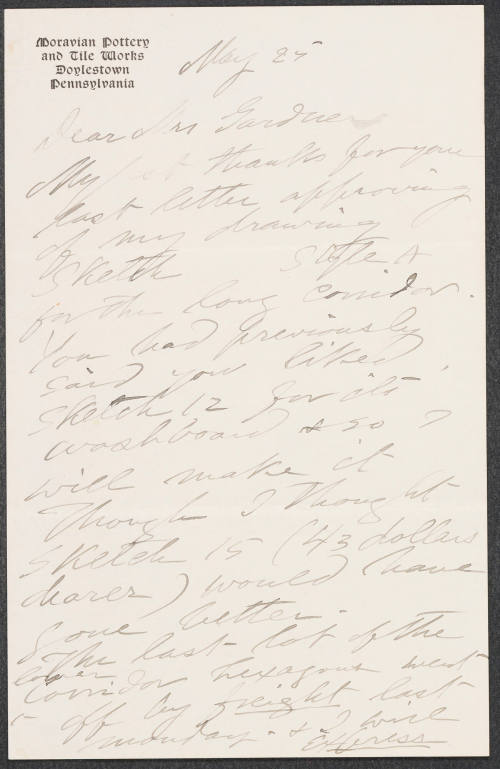 Moravian Pottery
and Tile Works
Doylestown
Pennsylvania
May 25
Dear Mrs Gardner
My best thanks for your
last letter approving
of my drawing
Sketch style A
for the long corridor.
You had previously
said you liked
sketch 12 for its
washboard & so I
will make it
Though I thought
sketch 15 (43 dollars
dearer) would have
gone better.
The last lot of the
lower
corridor hexagons went
off by freight last
monday. & I will
express